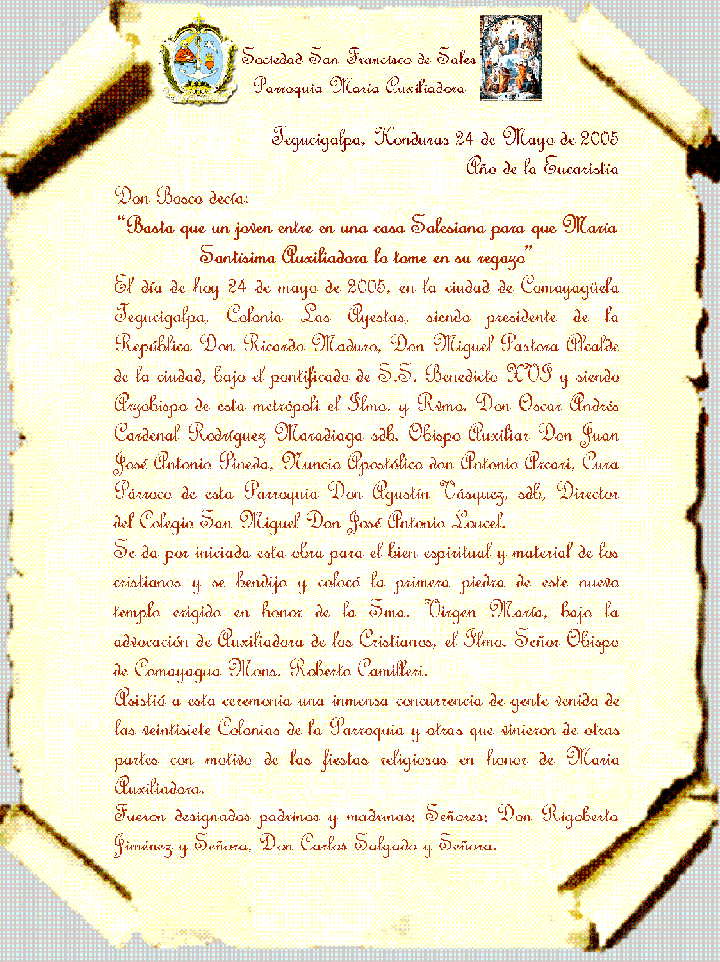 Sociedad San Francisco de Sales
Parroquia María Auxiliadora
Tegucigalpa, Honduras 24 de Mayo de 2005
Año de la Eucaristía
Don Bosco decía:
“Basta que un joven entre en una casa Salesiana para que María
Santísima Auxiliadora lo tome en su regazo”
El día de hoy 24 de mayo de 2005, en la ciudad de Comayagüela
Tegucigalpa, Colonia Las Ayestas, siendo presidente de la
República Don Ricardo Maduro, Don Miguel Pastora Alcalde
de la ciudad, bajo el pontificado de S.S. Benedicto XVI y siendo
Arzobispo de esta metrópoli el Ilmo. y Rvmo. Don Oscar Andrés
Cardenal Rodríguez Maradiaga sdb, Obispo Auxiliar Don Juan
José Antonio Pineda, Nuncio Apostólico don Antonio Arcari, Cura
Párroco de esta Parroquia Don Agustín Vásquez, sdb, Director
del Colegio San Miguel Don José Antonio Loucel.
Se da por iniciada esta obra para el bien espiritual y material de los
cristianos y se bendijo y colocó la primera piedra de este nuevo
templo erigido en honor de la Sma. Virgen María, bajo la
advocación de Auxiliadora de los Cristianos, el Ilmo. Señor Obispo
de Comayagua Mons. Roberto Camilleri.
Asistió a esta ceremonia una inmensa concurrencia de gente venida de
las veintisiete Colonias de la Parroquia y otras que vinieron de otras
partes con motivo de las fiestas religiosas en honor de María
Auxiliadora.
Fueron designados padrinos y madrinas: Señores: Don Rigoberto
Jiménez y Señora, Don Carlos Salgado y Señora.